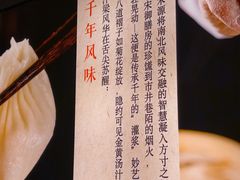 千年风味
宋源将南北风味交融的智慧凝入方寸之
宋御膳房的珍馐到市井巷陌的烟火，
轻晃动，这便是传承千年的“灌浆”妙艺
八道褶子如菊花绽放，隐约可见金黄汤汁
梁风华在舌尖苏醒：